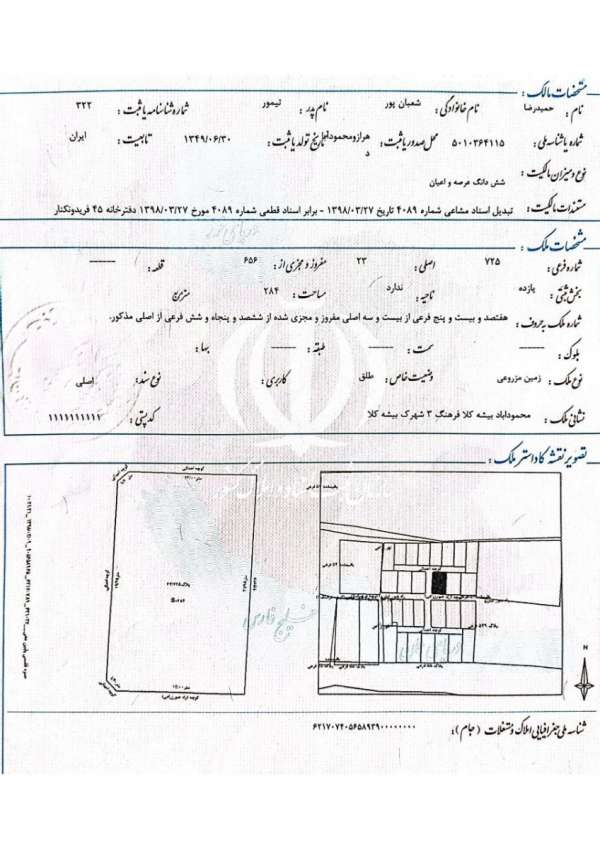 مشخصات مالک :
نام : حمیدرضا نام خانوادگی : شعبان پور نام پدر : تیمور شماره شناسنامه یا ثبت : ۳۲۲
شماره یا شناسه ملی : ۵۰۱۰۳۶۴۱۱۵ محل صدور یا ثبت : هرازومحموداباد تاریخ تولد یا ثبت : ۱۳۴۹/۰۶/۳۰ تابعیت : ایران
نوع و میزان مالکیت : شش دانگ عرصه و اعیان
مستندات مالکیت : تبدیل اسناد مشاعی شماره ۴۰۸۹ تاریخ ۱۳۹۸/۰۳/۲۷ - برابر اسناد قطعی شماره ۴۰۸۹ مورخ ۱۳۹۸/۰۳/۲۷ دفترخانه ۴۵ فریدونکنار
مشخصات ملک :
شماره فرعی : ۷۲۵ اصلی : ۲۳ مفروز و مجزی از : ۶۵۶ قطعه :
بخش ثبتی : یازده ناحیه : ندارد مساحت : ۲۸۴ مترمربع
شماره ملک به حروف : هفتصد و بیست و پنج فرعی از بیست و سه اصلی مفروز و مجزی شده از ششصد و پنجاه و شش فرعی از اصلی مذکور.
بلوک : سمت : طبقه : بها :
نوع ملک : زمین مزروعی وضعیت خاص : طلق کاربری : نوع سند : اصلی
نشانی ملک : محموداباد بیشه کلا فرهنگ ۳ شهرک بیشه کلا کدپستی : ۱۱۱۱۱۱۱۱۱۱
تصویر نقشه کاداستر ملک :
خلیج فارس
N
شناسه ملی جغرافیایی املاک و مستغلات (جام) : ۶۲۱۷۰۷۴۰۵۶۵۸۹۳۹۰۰۰۰۰۰۰۰